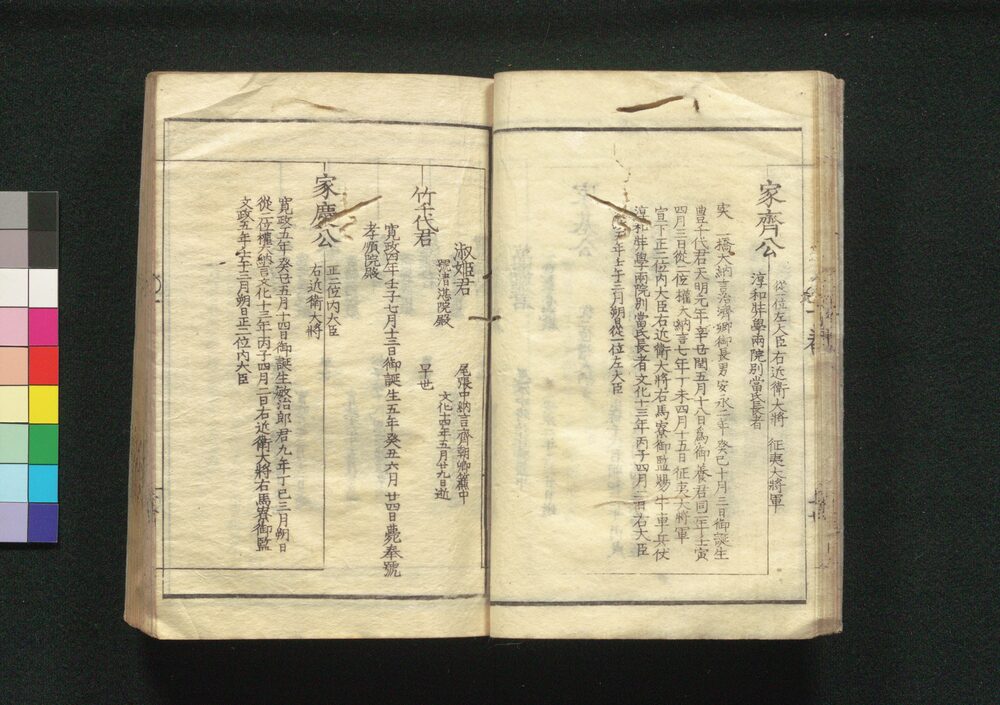 家齊公
從一位左大臣右近衛大將 征夷大將軍
淳和弉學兩院別當氏長者
実 一橋大納言治濟卿御長男安永二年癸巳十月三日御誕生
豊千代君天明元年辛丑閏五月十八日爲御養君同二年壬寅
四月三日從二位權大納言七年丁未四月十五日征夷大將軍
宣下正二位内大臣右近衛大將右馬寮御監賜牛車兵仗
淳和弉學兩院別當氏長者文化十三年丙子四月二日右大臣
年壬午三月朔日從一位左大臣
淑姫君
尾張中納言齊朝卿簾中
號清湛院殿
文化十四年五月廿九日逝
竹千代君
早世
寛政四年壬子七月十三日御誕生五年癸丑六月廿四日薨奉號
孝順院殿
家慶公
正二位内大臣
右近衛大將
寛政五年癸丑五月十四日御誕生敏治郎君九年丁巳三月朔日
從二位權大納言文化十三年丙子四月二日右近衛大將右馬寮御監
文政五年壬午三月朔日正二位内大臣